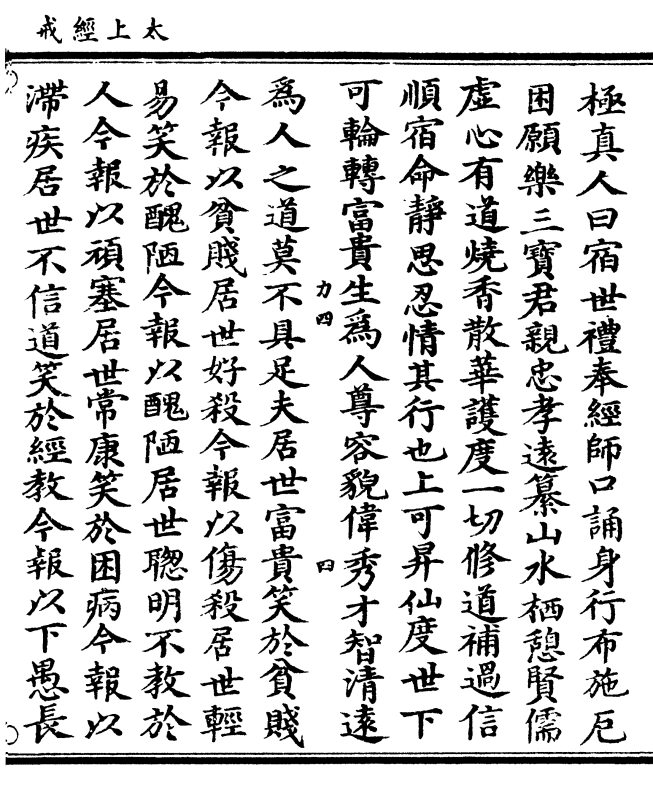 太上經戒
極真人曰宿世禮奉經師口誦身行布施厄
困願樂三寶君親忠孝遠纂山水栖憩賢儒
虛心有道燒香散華護度一切修道補過信
順宿命靜思忍情其行也上可昇仙度世下
可輪轉富貴生為人尊容貌偉秀才智清遠
力四
四
為人之道莫不具足夫居世富貴笑於貧賤
今報以貧賤居世好殺今報以傷殺居世輕
易笑於醜陋今報以醜陋居世聰明不教於
人今報以頑塞居世常康笑於困病今報以
滯疾居世不信道笑於經教今報以下愚長